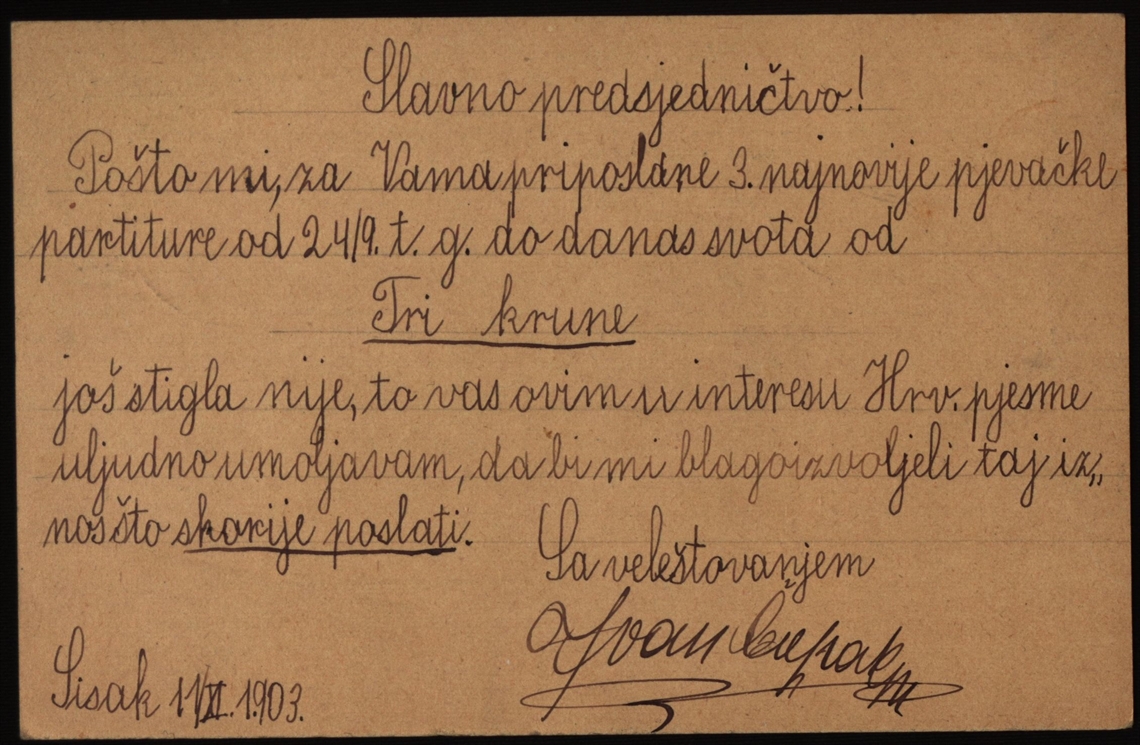 Slavno predsjedničtvo!
Pošto mi, za Vama priposlane 3. najnovije pjevačke
partiture od 24/9. t. g. do danas svota od
Tri krune
još stigla nije, to vas ovim u interesu Hrv. pjesme
uljudno umoljavam, da bi mi blagoizvoljeli taj iz„
nos što skorije poslati.
Sa veleštovanjem
Ivan
Sisak 11/XI. 1903.